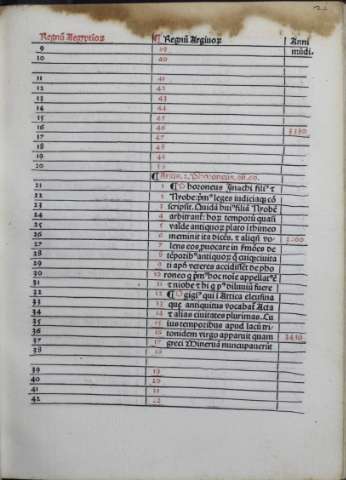 Regnũ Aegyptioꝝ ¶ Regnũ Argiuoꝝ Anni
9 39 mũdi.
10 40
11 41
12 42
13 43
14 44
15 45
16 46 3390
17 47
18 48
19 49
20 50
¶ Argiu. 2. Phoroneus. añ. 60.
21 1 ¶ Phoroneus Inachi filiꝰ ⁊
22 2 Nyobe: pͥmꝰ leges iudiciaq; cõ
23 3 scripsit. Quidã huiꝰ filiã Nyobẽ
24 4 arbitranť: hoꝝ temporũ quasi
25 5 valde antiquoꝝ: plato ĩ thimeo
26 6 meminit ita dicẽs. ⁊ aliqñ vo-
27 7 lens eos puocare in ſmões de 3400
28 8 tẽporibꝰ antiquoꝝ
29 9 ti apđ veteres accidisset de pho
30 10 roneo q̃ pͥmꝰ hoc noĩe appellatꝰ ẽ
31 11 ⁊ niobe ⁊ hi q̃ pꝰ diluuiũ fuere
32 12 ¶ Ogigiꝰ qui ĩ Attica eleusina
33 13 que antiquitus vocabať Acta
34 14 ⁊ alias ciuitates plurimas. Cu
35 15 ius temporibus apud lacũ tri
36 16 tonidem virgo apparuit quam 3410
37 17 greci Mineruã nuncupauerũt
38 18
39 19
40 20
41 21
42 22